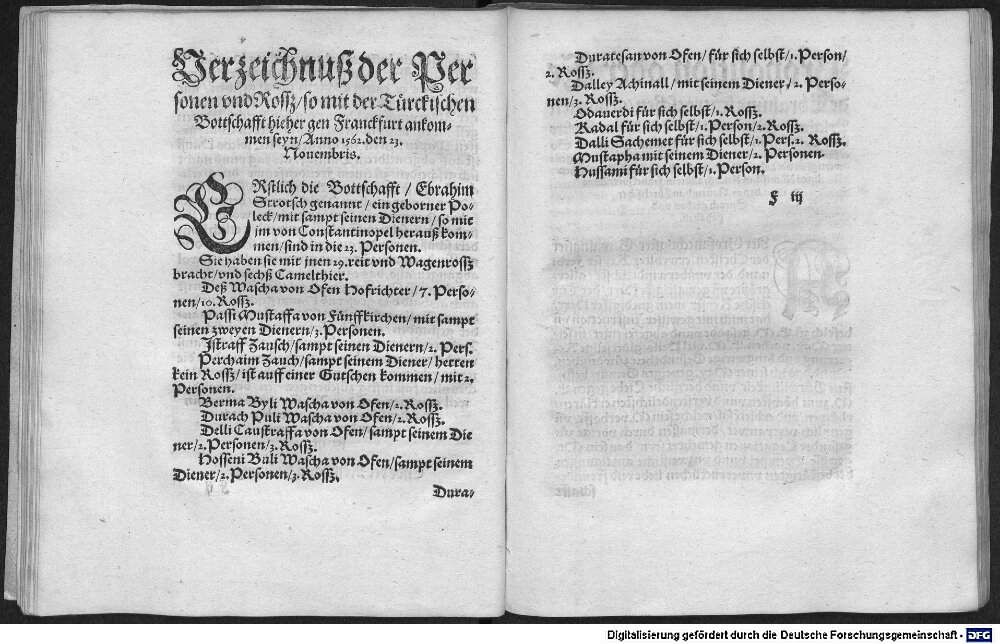 Verzeichnuß der Per
sonen vnd Rossz/so mit der Türckischen
Bottschafft hieher gen Franckfurt ankom-
men seyn/Anno 1562. den 23.
Nouembris.
ERstlich die Bottschafft/Ebrahim
Strotsch genannt/ein geborner Po-
leck/mit sampt seinen Dienern/so mit
jm von Constantinopel herauß kom-
men/sind in die 23. Personen.
Sie haben sie mit jnen 29. reit vnd Wagenrossz
bracht/vnd sechß Camelthier.
Deß Wascha von Ofen Hofrichter/7. Perso-
nen/10. Rossz.
Passi Mustaffa von Fünffkirchen/mit sampt
seinen zweyen Dienern/3. Personen.
Istraff Zausch/sampt seinen Dienern/2. Pers.
Perchaim Zauch/sampt seinem Diener/hetten
kein Rossz/ist auff einer Gutschen kommen/mit 2.
Personen.
Berma Byli Wascha von Ofen/2. Rossz.
Durach Puli Wascha von Ofen/2. Rossz.
Delli Caustraffa von Ofen/sampt seinem Die
ner/2. Personen/3. Rossz.
Hosseni Buli Wascha von Ofen/sampt seinem
Diener/2. Personen/3. Rossz.
Dura-
Duratesan von Ofen/für sich selbst/1. Person/
2. Rossz.
Dalley Achinall/mit seinem Diener/2. Perso-
nen/3. Rossz.
Odauerdi für sich selbst/1. Rossz.
Kadal für sich selbst/1. Person/2. Rossz.
Dalli Sachemet für sich selbst/1. Pers. 2. Rossz.
Mustapha mit seinem Diener/2. Personen.
Hussami für sich selbst/1. Person.
F iij
Digitalisierung gefördert durch die Deutsche Forschungsgemeinschaft - DFG